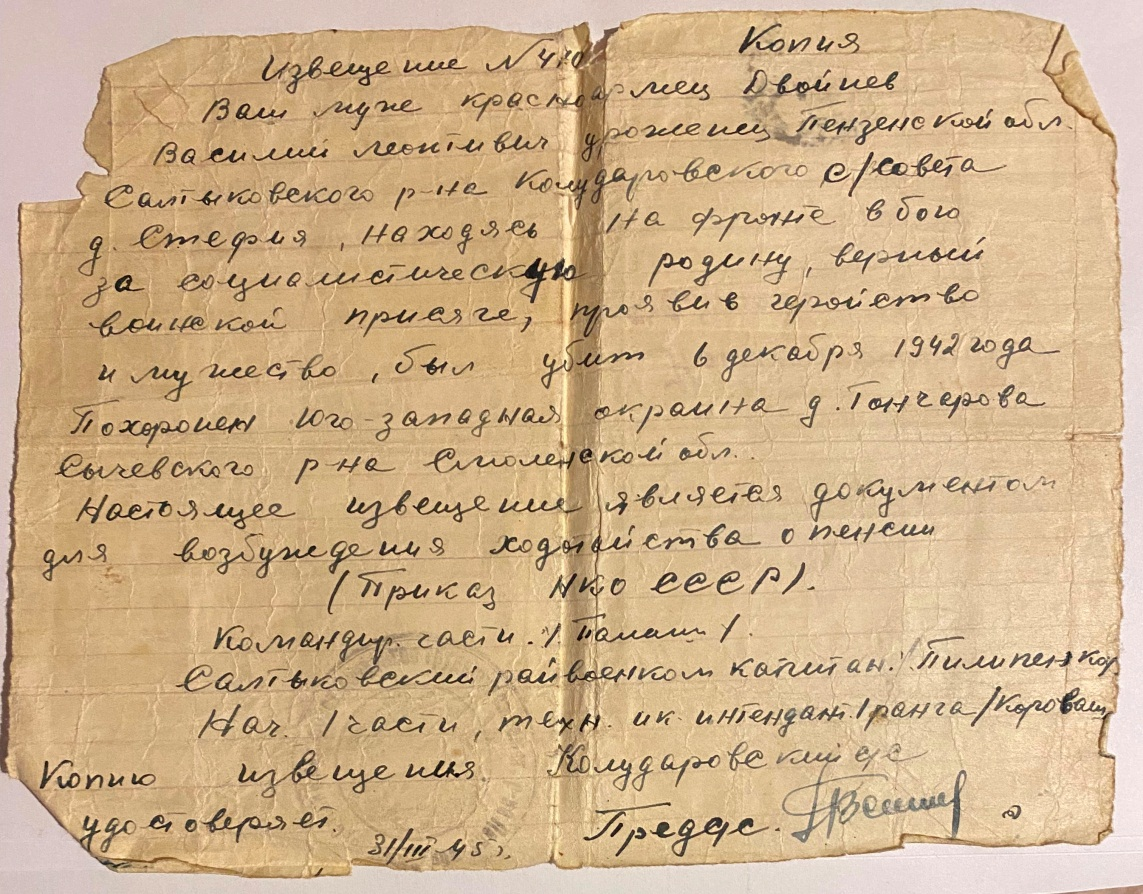 Копия
Извещение № 410
Ваш муж красноармец Двойнев
Василий Леонтивич уроженец Пензенской обл.
Салтыковского р-на Колударовского с/совета
д. Стефия, находясь на фронте в бою
за социалистическую родину, верный
воинской присяге, проявив геройство
и мужество, был убит 6 декабря 1942 года
Похоронен юго-западная окраина д. Гончарова
Сычевского р-на Смоленской обл.
Настоящее извещение является документом
для возбуждения ходотайства о пенсии
(Приказ НКО СССР).
Командир части. /
Салтыковский райвоенком капитан /Пилипенко
Нач. 1 части, техн. ик. интендант 1 ранга /
Копию извещения Колударовский с/с
удостоверяет. Предс/с.
31/III-45 г.